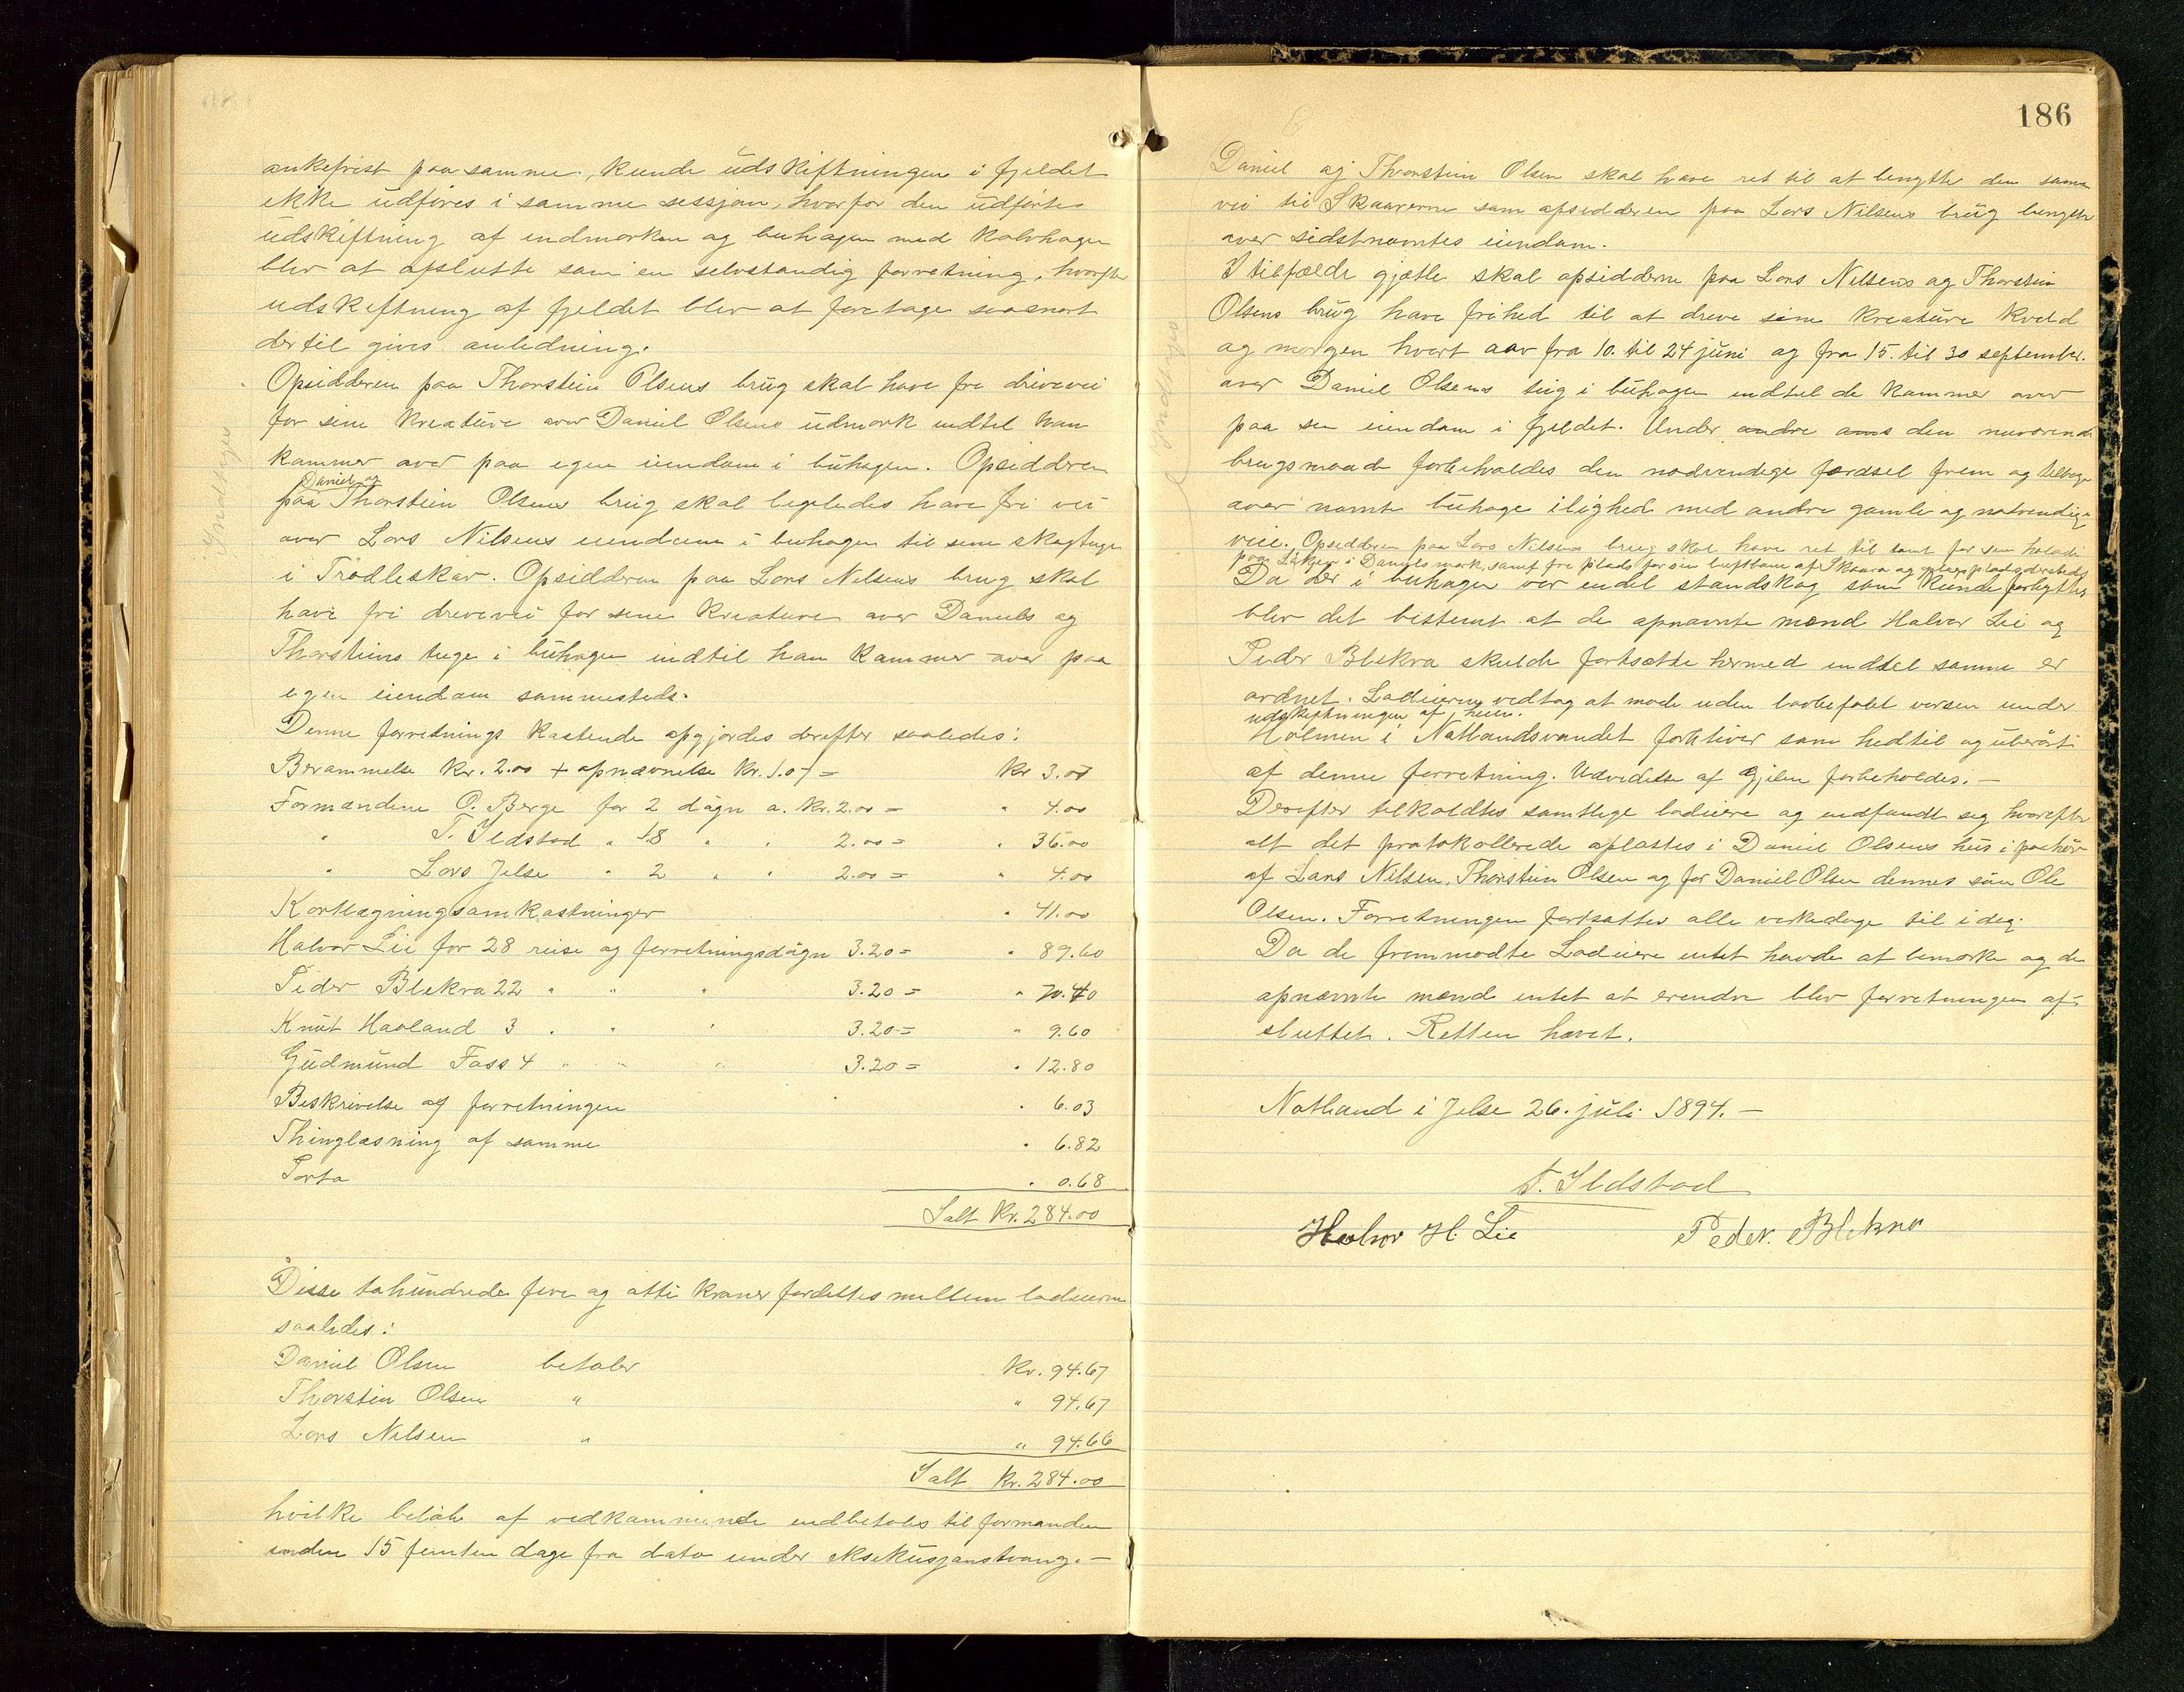 ankefrist paa samme, kunde udskiftningen i fjeldet
ikke udføres i samme sessjon, hvorfor den udførte
udskiftning af indmarken og buhagen med kalvhagen
blev at afslutte som en selvstændig forretning, hvorefter
udskiftning af fjeldet blev at foretage saasnart
dertil gives anledning.
Opsidderen paa Thorstein Olsens brug skal have fri drivevei
for sine kreature over Daniel Olsens udmark indtil han
kommer over paa egen eiendom i buhagen. Opsidderen
Daniel og
paa Thorstein Olsens brug skal ligeledes have fri vei
over Lars Nilsens eiendom i buhagen til sine skogteige
i Trodleskar. Opsidderen paa Lars Nilsens brug skal
have fri drivevei for sine kreature over Daniels og
Thorsteins teige i buhagen indtil han kommer over paa
egen eiendom sammesteds.
Denne forretnings kostende opgjordes derefter saaledes:
Berammelse kr. 2.00 + opnævnelse kr. 1.07 = kr 3.07
Formændene O. Berge for 2 døgn a. kr. 2.00 = " 4.00
" T. Ildstad " 18 " " 2.00 = " 36.00
" Lars Jelse " 2 " " 2.00 = " 4.00
Kortlægningsomkostninger " 41.00
Halvor Lie for 28 reise og forretningsdøgn 3.20 = " 89.60
Peder Blikra 22 " " " 3.20 = " 70.40
Knut Haaland 3 " " " 3.20 = " 9.60
Gudmund Foss 4 " " " 3.20 = " 12.80
Beskrivelse af forretningen " 6.03
Thinglæsning af samme " 6.82
Porto " 0.68
Ialt Kr. 284.00
Disse tohundrede fire og otti kroner fordeltes mellem lodeierne
saaledes:
Daniel Olsen betaler Kr. 94.67
Thorstein Olsen " " 94.67
Lars Nilsen " " 94.66
Ialt kr. 284.00
hvilke beløb af vedkommende indbetales til formanden
inden 15 femten dage fra dato under eksekusjonstvang. —
186
Daniel og Thorstein Olsen skal have ret til at benytte den samme
vei til Skaarerne som opsidderen paa Lars Nilsens brug benytter
over sidstnævntes eiendom.
I tilfælde gjætle skal opsidderne paa Lars Nilsens og Thorstein
Olsens brug have frihed til at dreve sine kreature kveld
og morgen hvert aar fra 10. til 24 juni og fra 15. til 30 september.
over Daniel Olsens teig i buhagen indtil de kommer over
paa sin eiendom i fjeldet. Under andre den nuværende
brugsmaade forbeholdes den nødvendige færdsel frem og tilbage
over nævnte buhage i lighed med andre gamle og nødvendige
veie. Opsidderen paa Lars Nilsens brug skal have ret til tomt for sin høladi
paa i Daniels mark, samt fri plads for sin
Da der i buhagen var endel standskog som kunde forbyttes
blev det bestemt at de opnævnte mænd Halvor Lie og
Peder Blikra skulde fortsætte hermed indtil samme er
ordnet. Lodeierne vedtog at møde uden lovbefalet varsel under
udskiftningen af heien.
Holmen i Natlandsvandet forbliver som hidtil og uberørt
af denne forretning. Udvidelse af Gjilen forbeholdes. —
Derefter tilkaldtes samtlige lodeiere og indfandt sig hvorefter
alt det protokollerede oplæstes i Daniel Olsens hus i paahør
af Lars Nilsen, Thorstein Olsen og for Daniel Olsen dennes søn Ole
Olsen. Forretningen fortsattes alle virkedage til idag.
Da de fremmødte Lodeiere intet havde at bemærke og de
opnævnte mænd intet at erindre blev forretningen af-
sluttet. Retten hævet.
Natland i Jelse 26. juli 1894. —
T. Ildstad
Halvor H. Lie Peder. Blikra